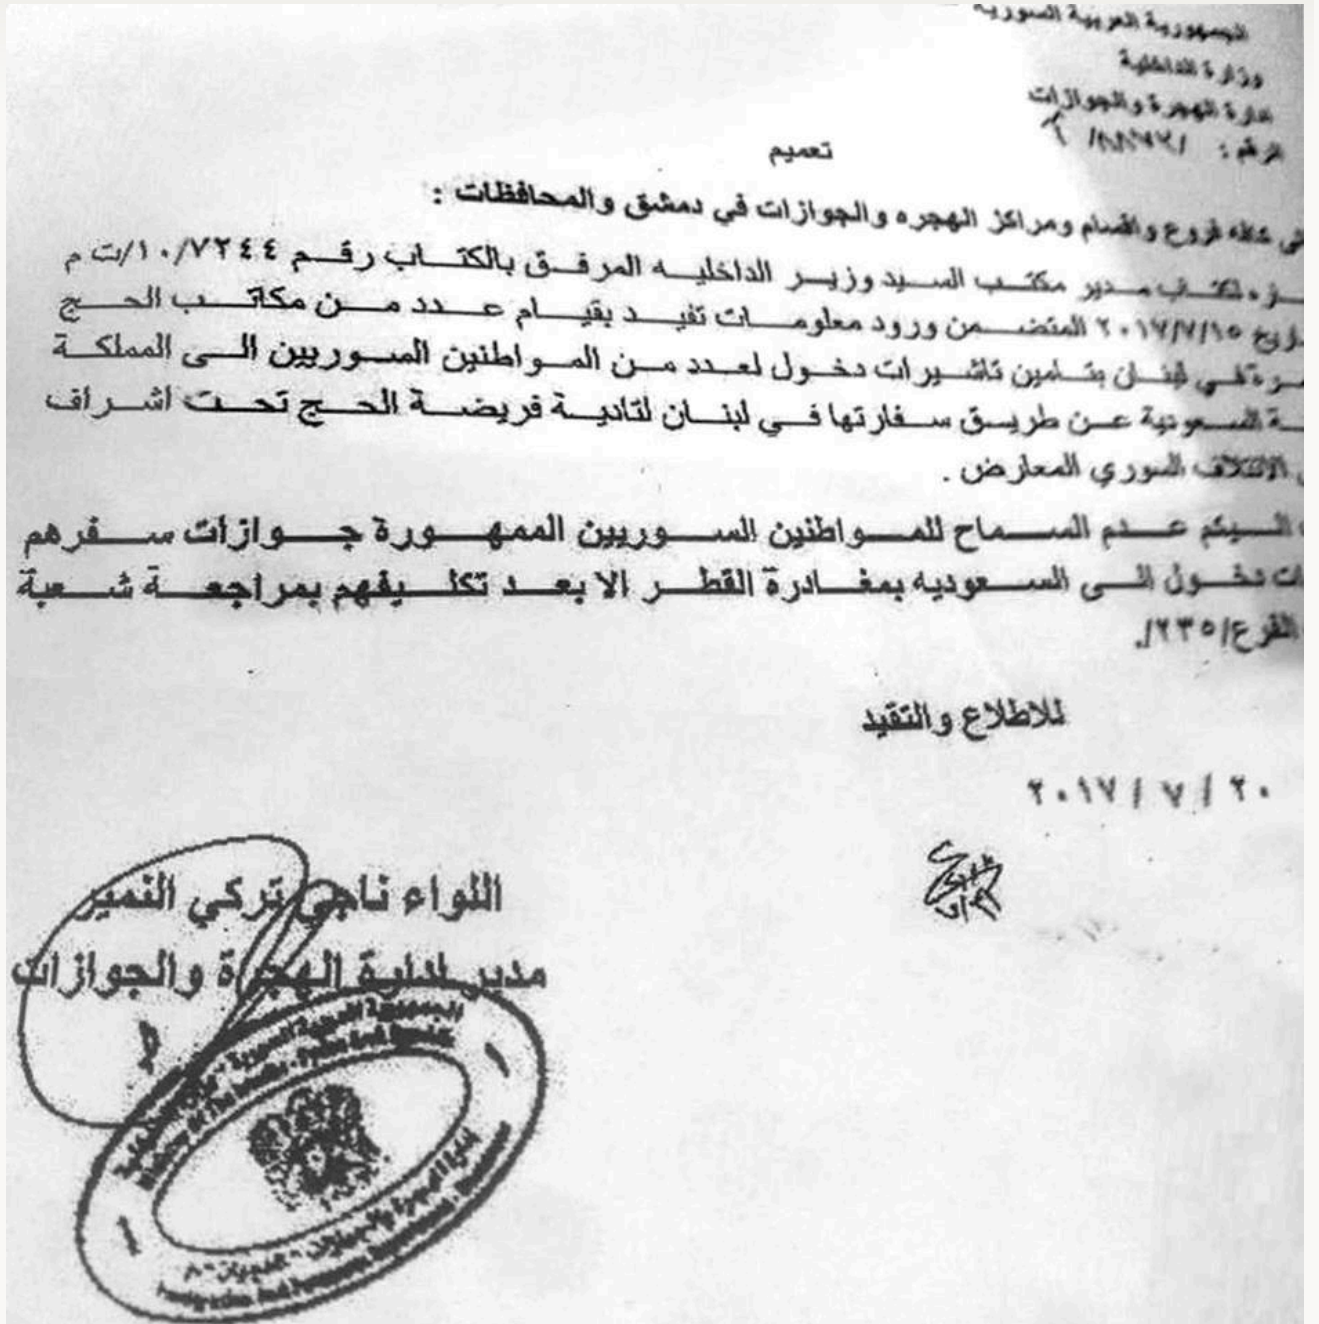 الجمهورية العربية السورية
وزارة الداخلية
ادارة الهجرة والجوازات
الرقم :
تعميم
الى كافه فروع واقسام ومراكز الهجره والجوازات في دمشق والمحافظات :
لكتاب مدير مكتب السيد وزير الداخليه المرفق بالكتاب رقم ١٠/٧٢٤٤/ت م
تاريخ ٢٠١٧/٧/١٥ المتضمن ورود معلومات تفيد بقيام عدد من مكاتب الحج
في لبنان بتامين تاشيرات دخول لعدد من المواطنين السوريين الى المملكة
السعودية عن طريق سفارتها في لبنان لتادية فريضة الحج تحت اشراف
الائتلاف السوري المعارض .
اليكم عدم السماح للمواطنين السوريين الممهورة جوازات سفرهم
دخول الى السعوديه بمغادرة القطر الا بعد تكليفهم بمراجعة شعبة
الفرع/٢٣٥/.
للاطلاع والتقيد
٢٠ / ٧ / ٢٠١٧
اللواء ناجي تركي النمير
مدير ادارة الهجرة والجوازات
الجمهورية العربية السورية
ادارة الهجرة والجوازات